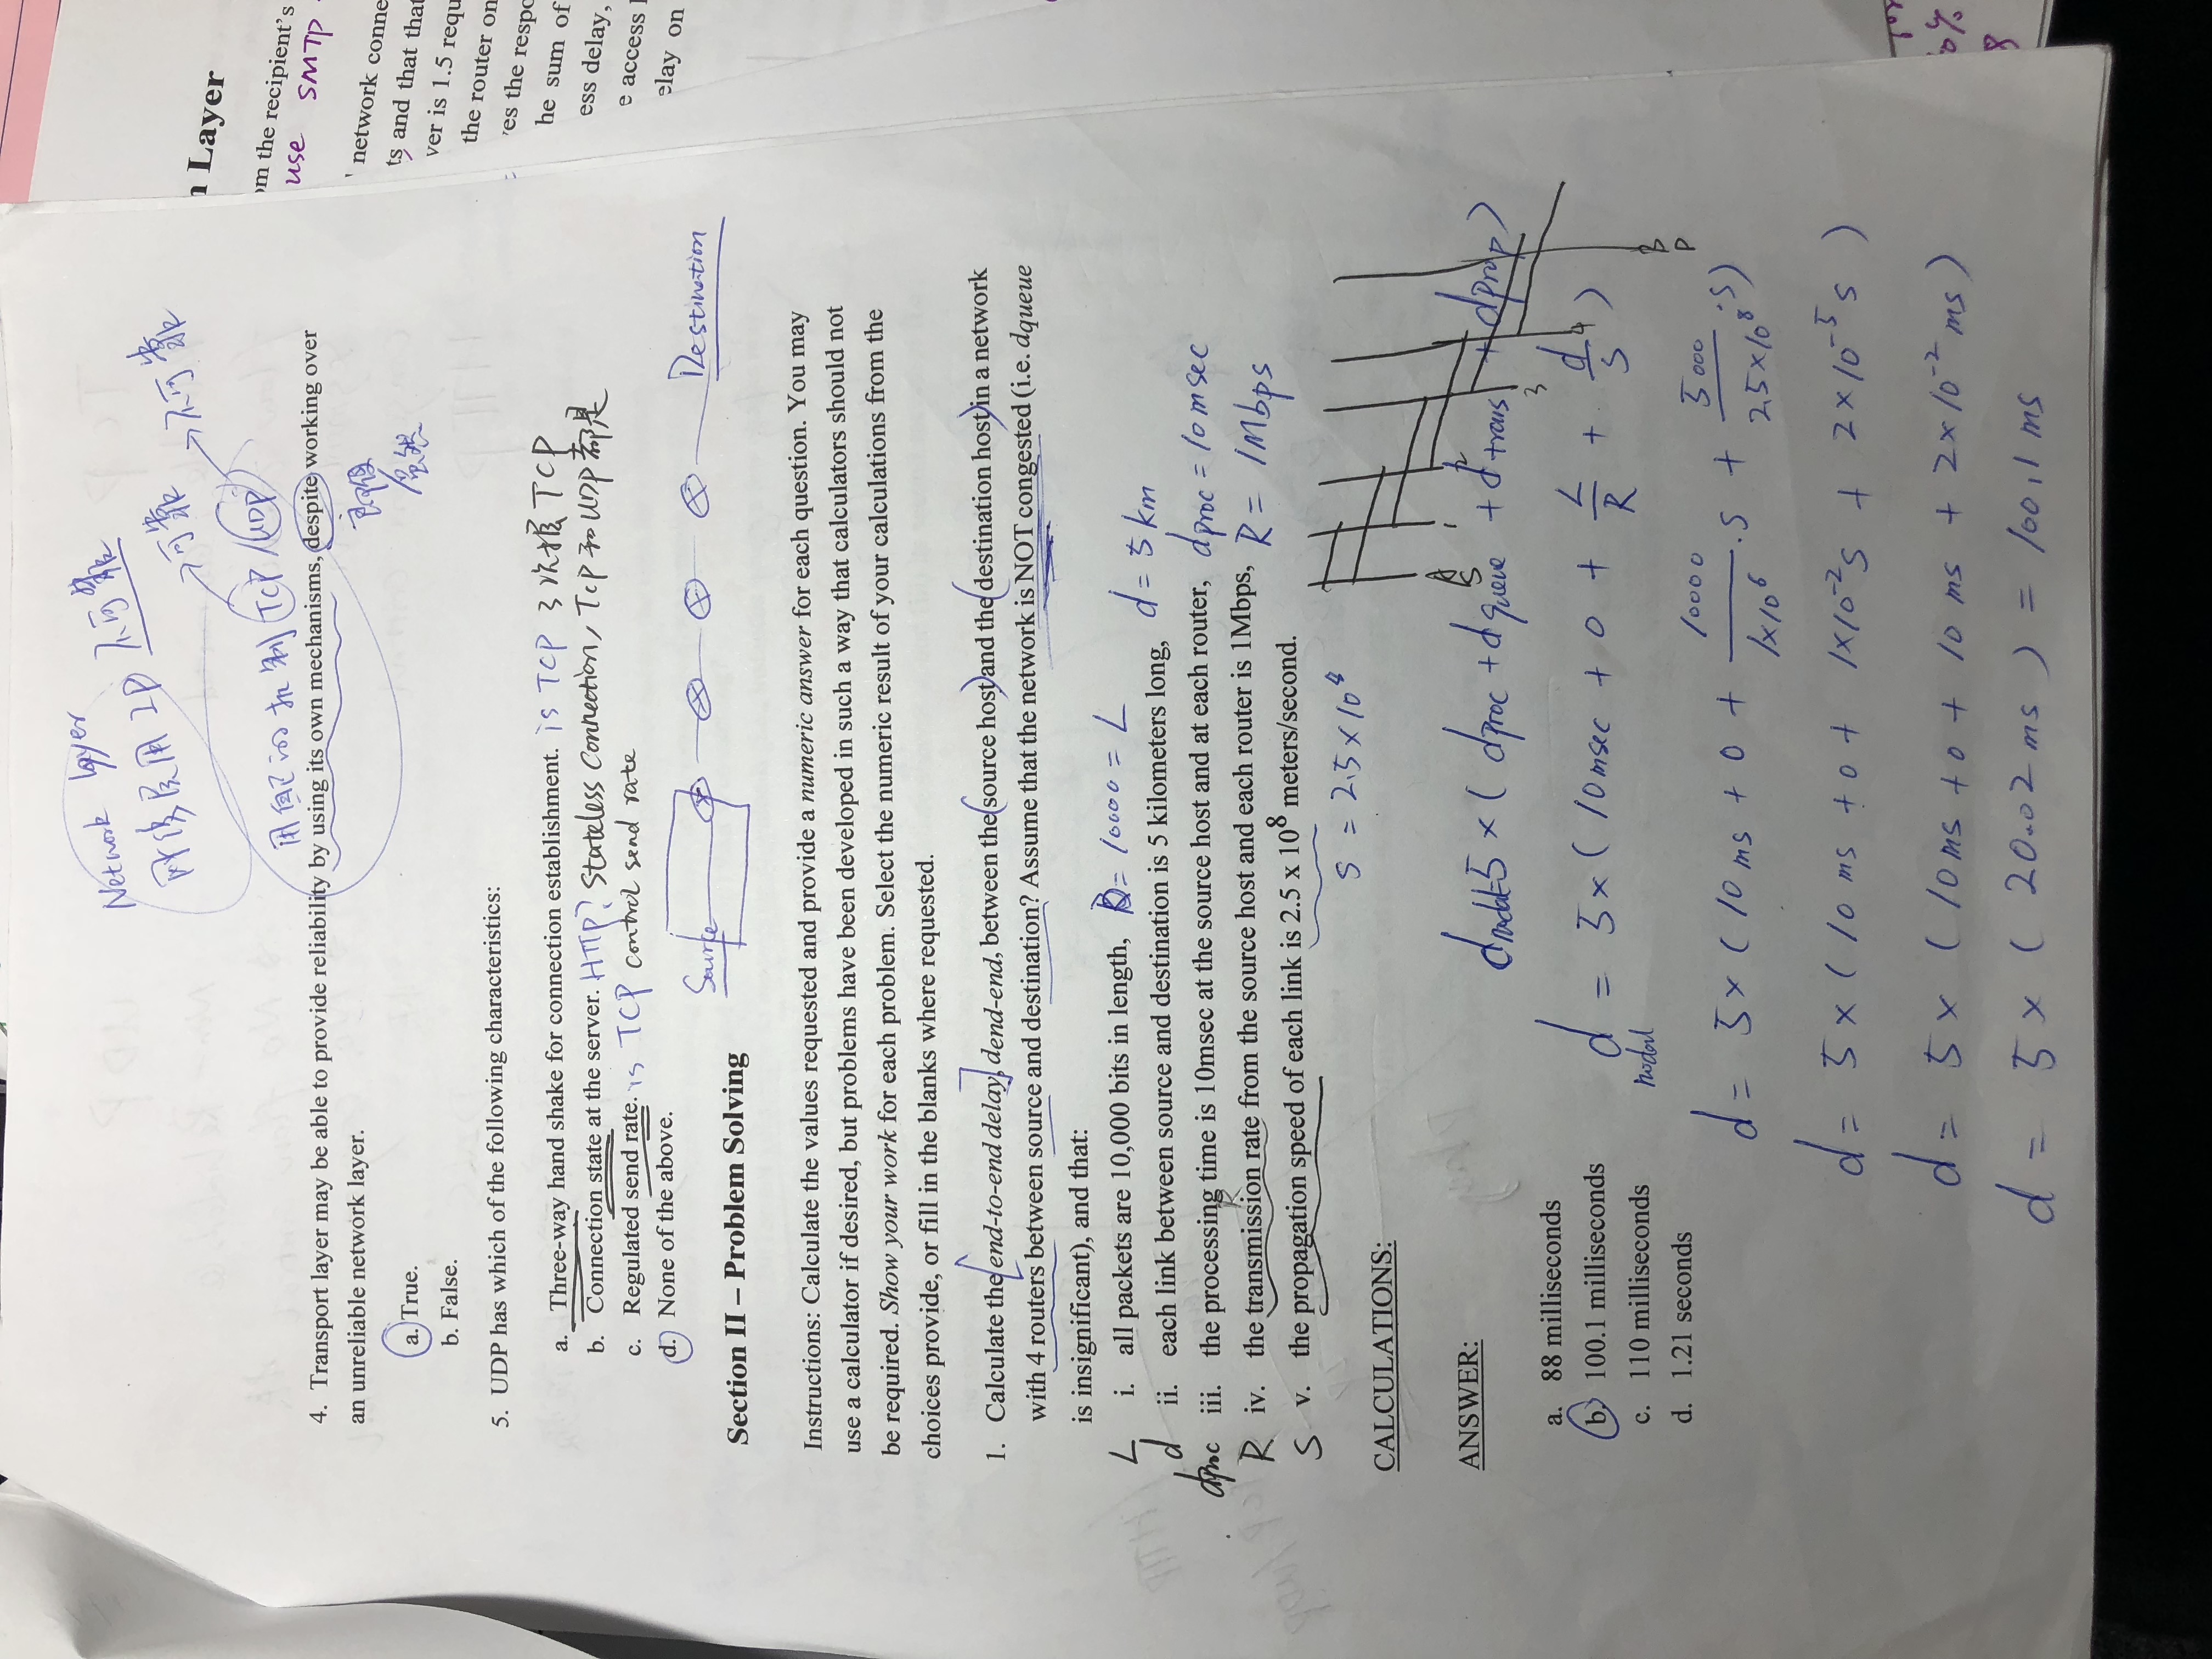 Network layer
网络层用 IP 不可靠
→可靠 →不可靠
用自己的机制 TCP / UDP
4. Transport layer may be able to provide reliability by using its own mechanisms, despite working over
an unreliable network layer.
a. True.
b. False.
5. UDP has which of the following characteristics:
a. Three-way hand shake for connection establishment. is TCP 3次握 TCP
b. Connection state at the server. HTTP? Stateless Connection, TCP和UDP都是
c. Regulated send rate. is TCP control send rate
d. None of the above.
Source Destination
Section II – Problem Solving
Instructions: Calculate the values requested and provide a numeric answer for each question. You may
use a calculator if desired, but problems have been developed in such a way that calculators should not
be required. Show your work for each problem. Select the numeric result of your calculations from the
choices provide, or fill in the blanks where requested.
1. Calculate the end-to-end delay, dend-end, between the source host and the destination host in a network
with 4 routers between source and destination? Assume that the network is NOT congested (i.e. dqueue
is insignificant), and that:
L i. all packets are 10,000 bits in length, = 10000 = L
d ii. each link between source and destination is 5 kilometers long, d = 5 km
dproc iii. the processing time is 10msec at the source host and at each router, dproc = 10 msec
R iv. the transmission rate from the source host and each router is 1Mbps, R = 1Mbps
S v. the propagation speed of each link is 2.5 x 10⁸ meters/second.
S = 2.5 × 10⁸
CALCULATIONS:
ANSWER:
a. 88 milliseconds
b. 100.1 milliseconds
c. 110 milliseconds
d. 1.21 seconds
A 1 2 3 4 B
S D
dnodal = 5 × ( dproc + dqueue + dtrans + dprop )
d nodal = 5 × ( 10 msec + 0 + L/R + d/S )
d = 5 × ( 10 ms + 0 + 10000/1×10⁶ · S + 5000/2.5×10⁸ · S )
d = 5 × ( 10 ms + 0 + 1×10⁻² s + 2×10⁻⁵ s )
d = 5 × ( 10 ms + 0 + 10 ms + 2×10⁻² ms )
d = 5 × ( 20.02 ms ) = 100.1 ms
n Layer
om the recipient's
use SMTP
network conne
ts and that that
ver is 1.5 requ
the router on
es the respo
he sum of
ess delay,
e access l
elay on